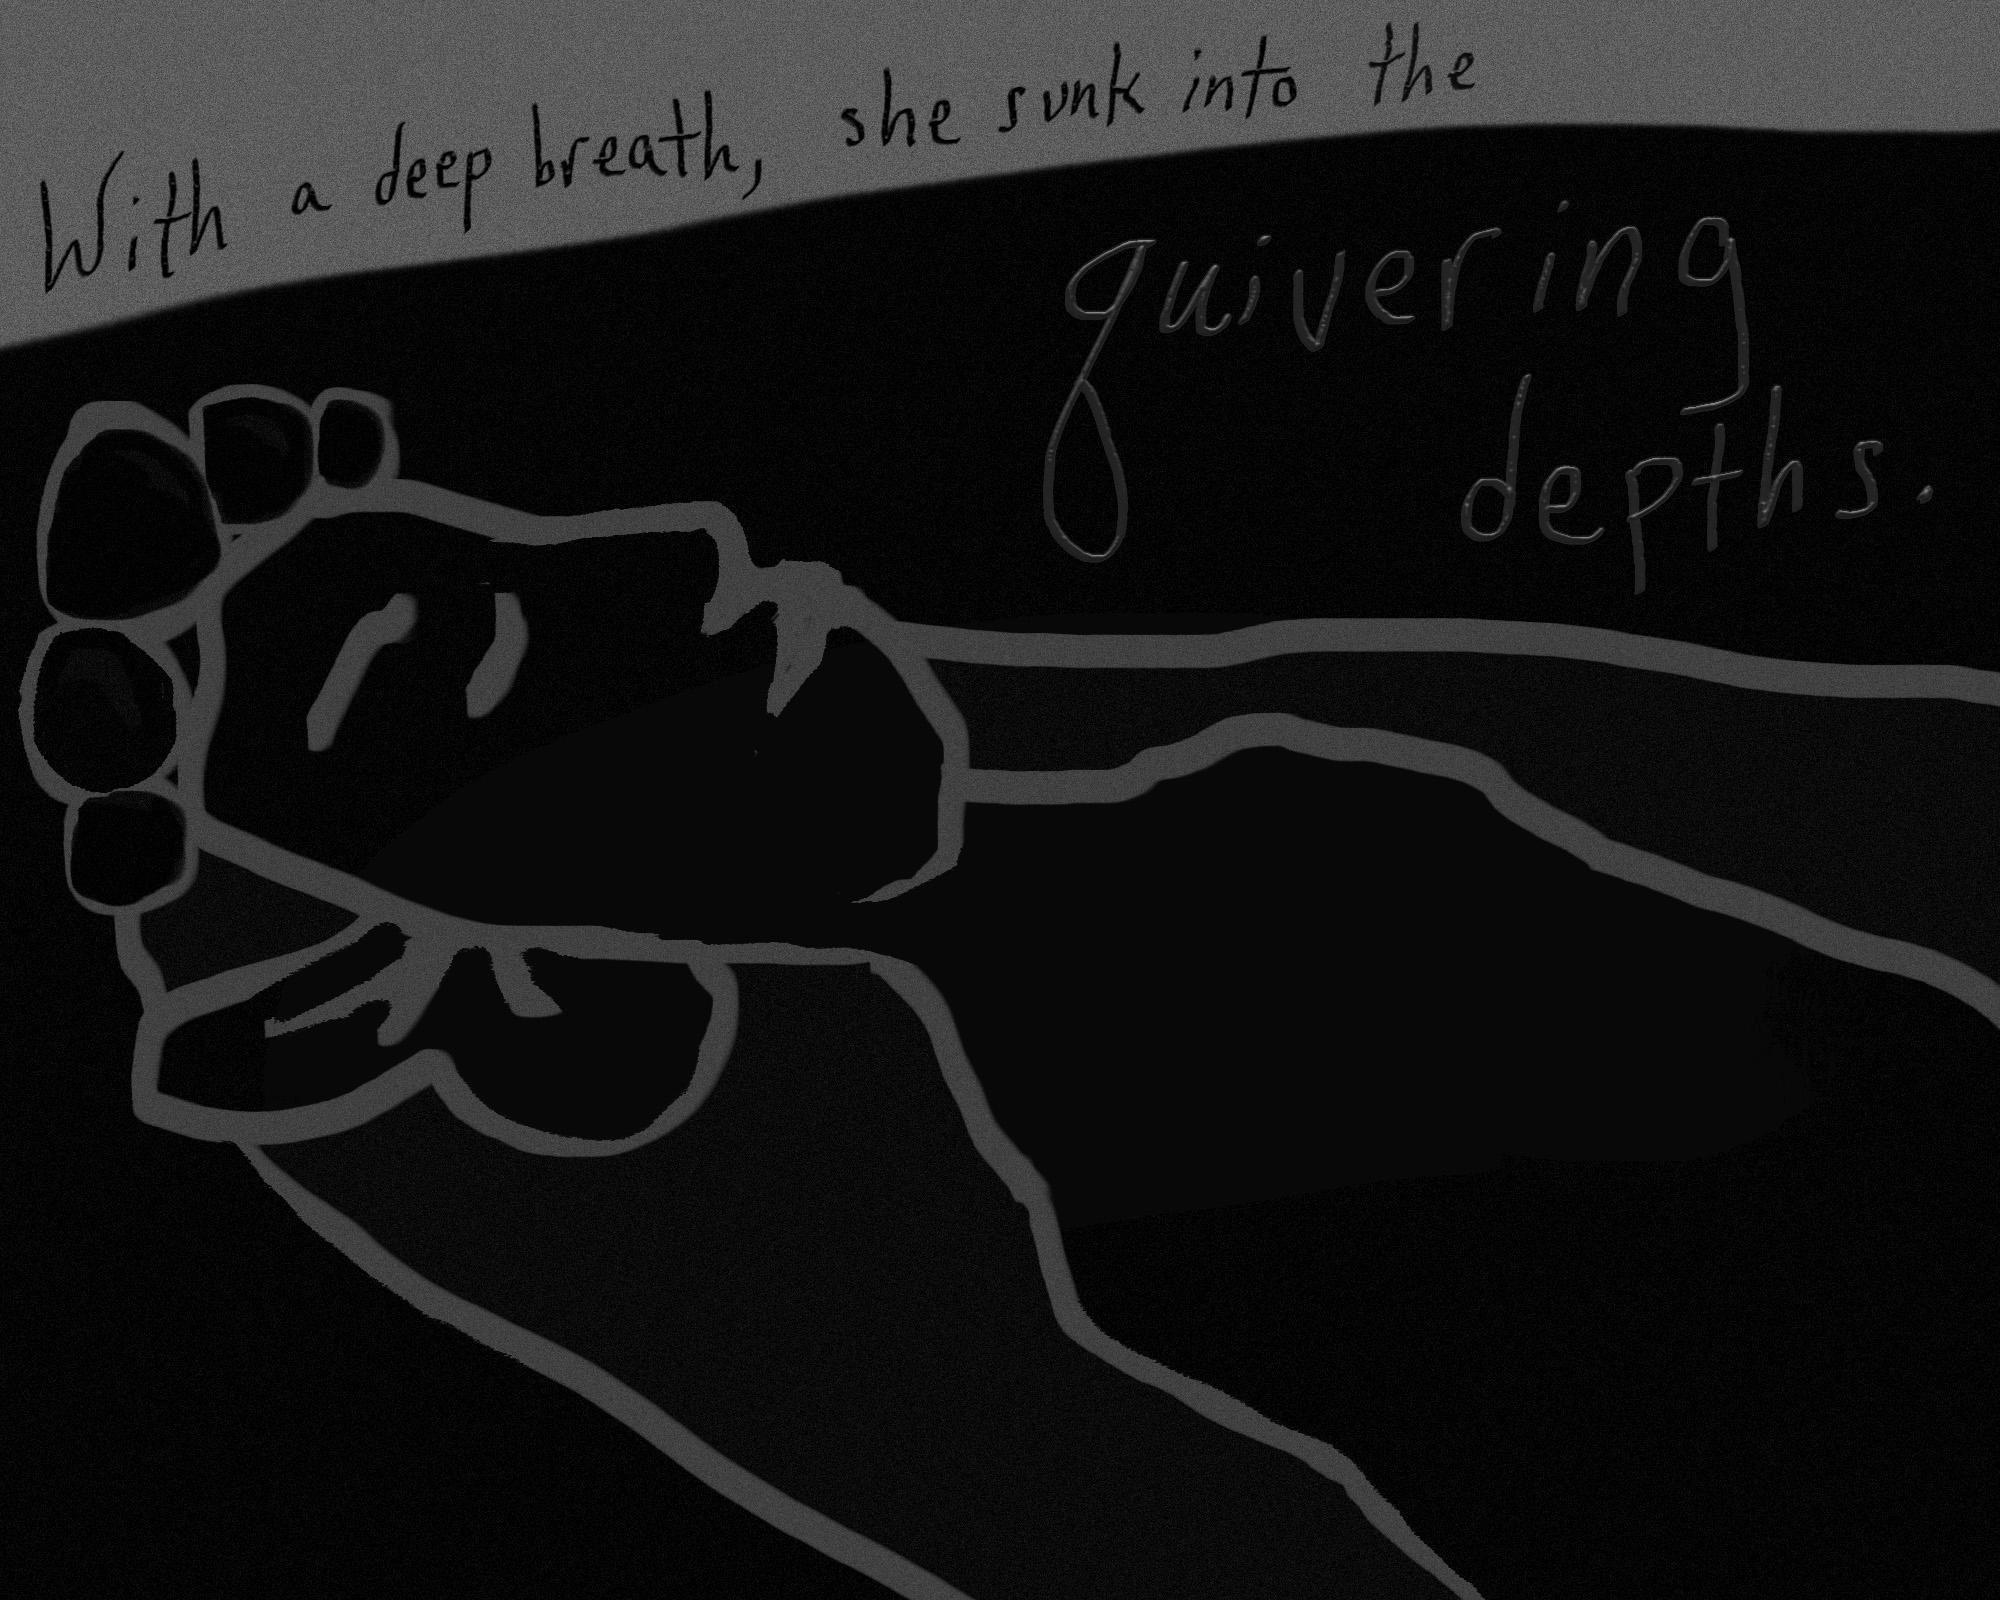 With a deep breath, she sunk into the
quivering
depths.